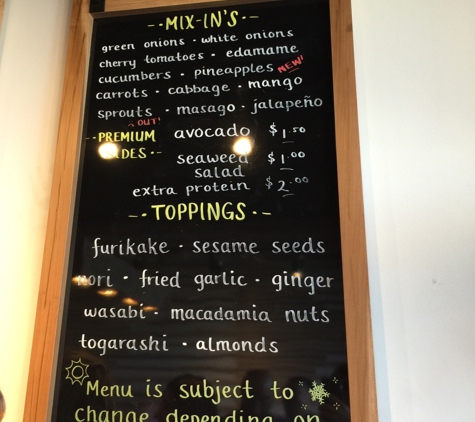 -·MIX-IN'S·-
green onions · white onions
cherry tomatoes · edamame
cucumbers · pineapples NEW!
carrots · cabbage · mango
sprouts · masago · jalapeño
OUT!
-·PREMIUM avocado $1.50
seaweed $1.00
salad
extra protein $2.00
-·TOPPINGS·-
furikake · sesame seeds
nori · fried garlic · ginger
wasabi · macadamia nuts
togarashi · almonds
Menu is subject to
change depending on